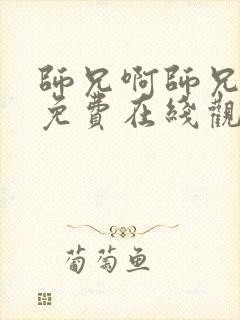 師兄啊師兄
免費在綫觀
葡萄鱼